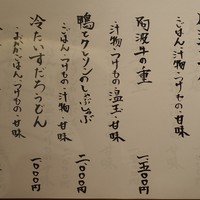 ごはん・汁物・つけもの・甘味
阿波牛の重
汁物・つけもの・温玉・甘味
一、五〇〇円
鴨とクレソンのしゃぶしゃぶ
ごはん・つけもの・汁物・甘味
二、〇〇〇円
冷たいすだちうどん
つけもの・甘味
一、〇〇〇円